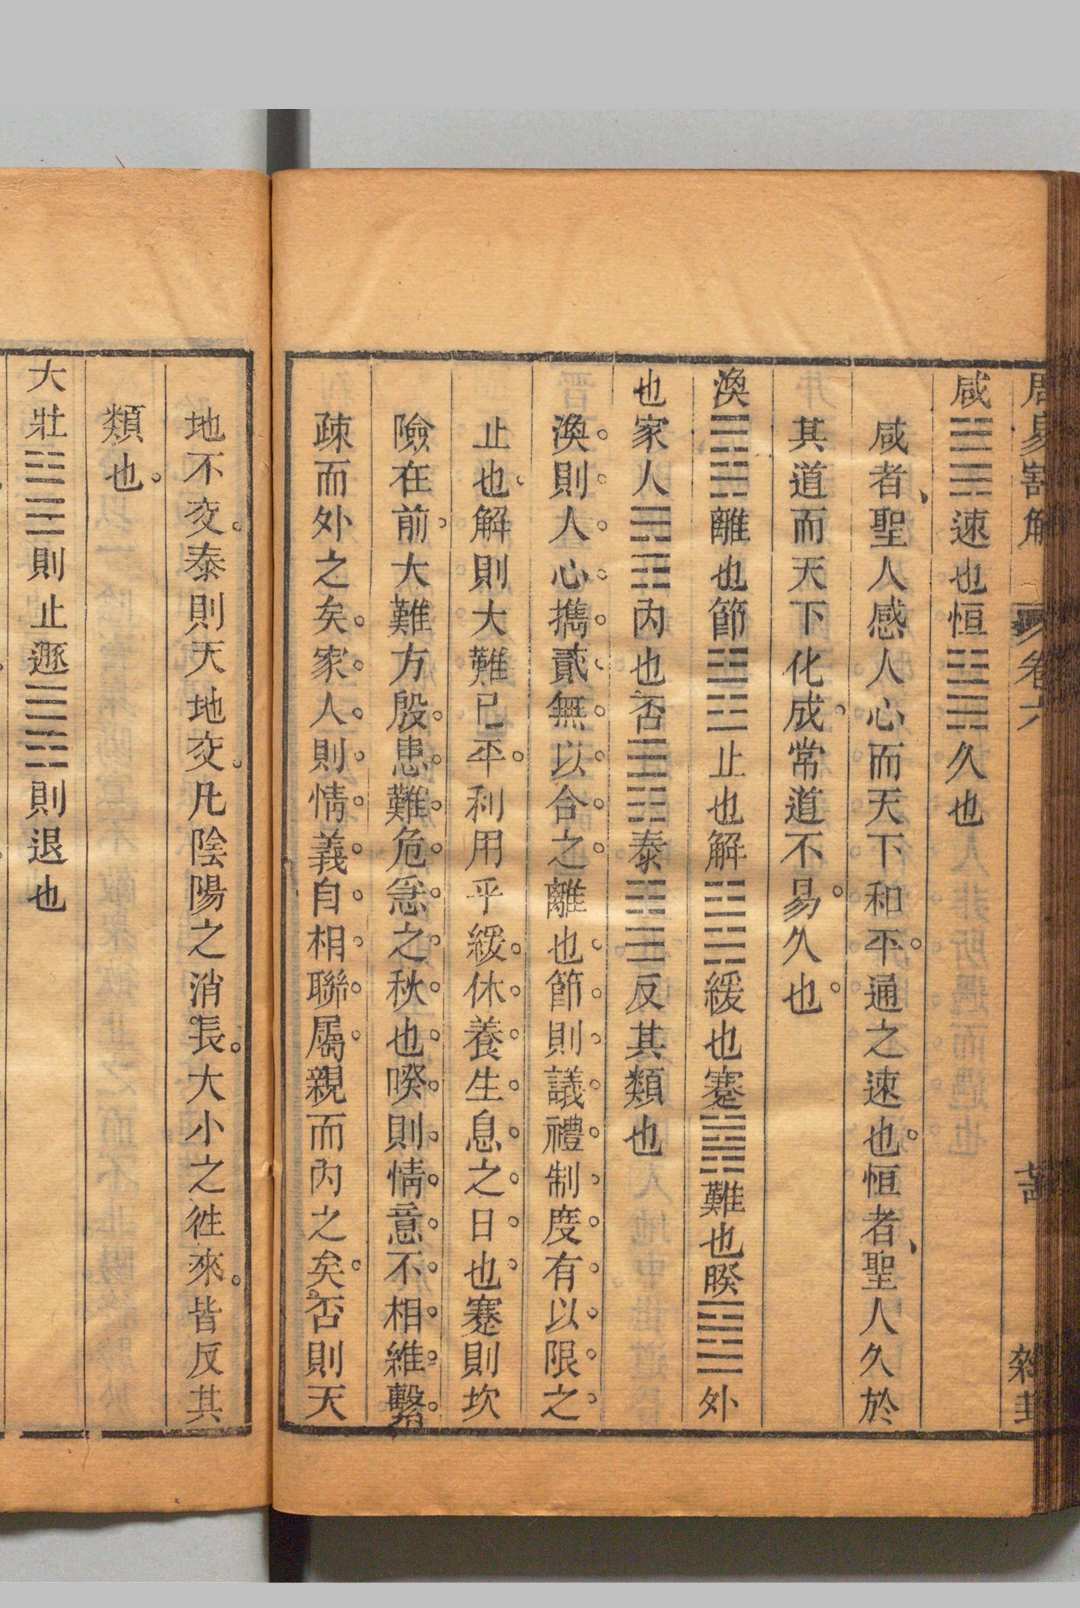 周易割解 卷六 雜卦
咸䷞速也恒䷟久也
咸者聖人感人心而天下和平。通之速也。恒者聖人久於
其道而天下化成。常道不易。久也。
渙䷺離也節䷻止也解䷧緩也蹇䷦難也睽䷥外
也家人䷤內也否䷋泰䷊反其類也
渙則人心攜貳。無以合之。離也。節則議禮制度。有以限之。
止也。解則大難已平。利用乎緩。休養生息之日也。蹇則坎
險在前。大難方殷。患難危急之秋也。睽則情意不相維繫。
疎而外之矣。家人則情義自相聯屬。親而內之矣。否則天
地不交。泰則天地交。凡陰陽之消長。大小之徃來。皆反其
類也。
大壯䷡則止遯䷠則退也